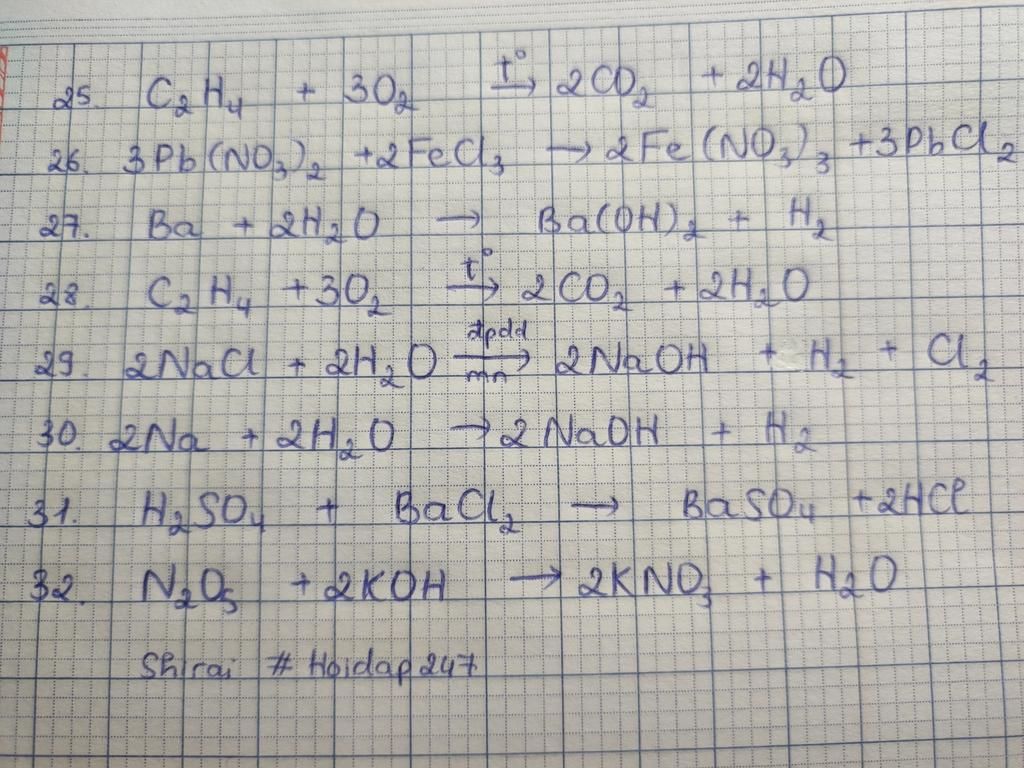 25. C₂H₄ + 3O₂ t°→ 2CO₂ + 2H₂O
26. 3Pb(NO₃)₂ + 2FeCl₃ → 2Fe(NO₃)₃ + 3PbCl₂
27. Ba + 2H₂O → Ba(OH)₂ + H₂
28. C₂H₄ + 3O₂ t°→ 2CO₂ + 2H₂O
29. 2NaCl + 2H₂O đpdd→ mn 2NaOH + H₂ + Cl₂
30. 2Na + 2H₂O → 2NaOH + H₂
31. H₂SO₄ + BaCl₂ → BaSO₄ + 2HCl
32. N₂O₅ + 2KOH → 2KNO₃ + H₂O
Shirai # Hoidap247